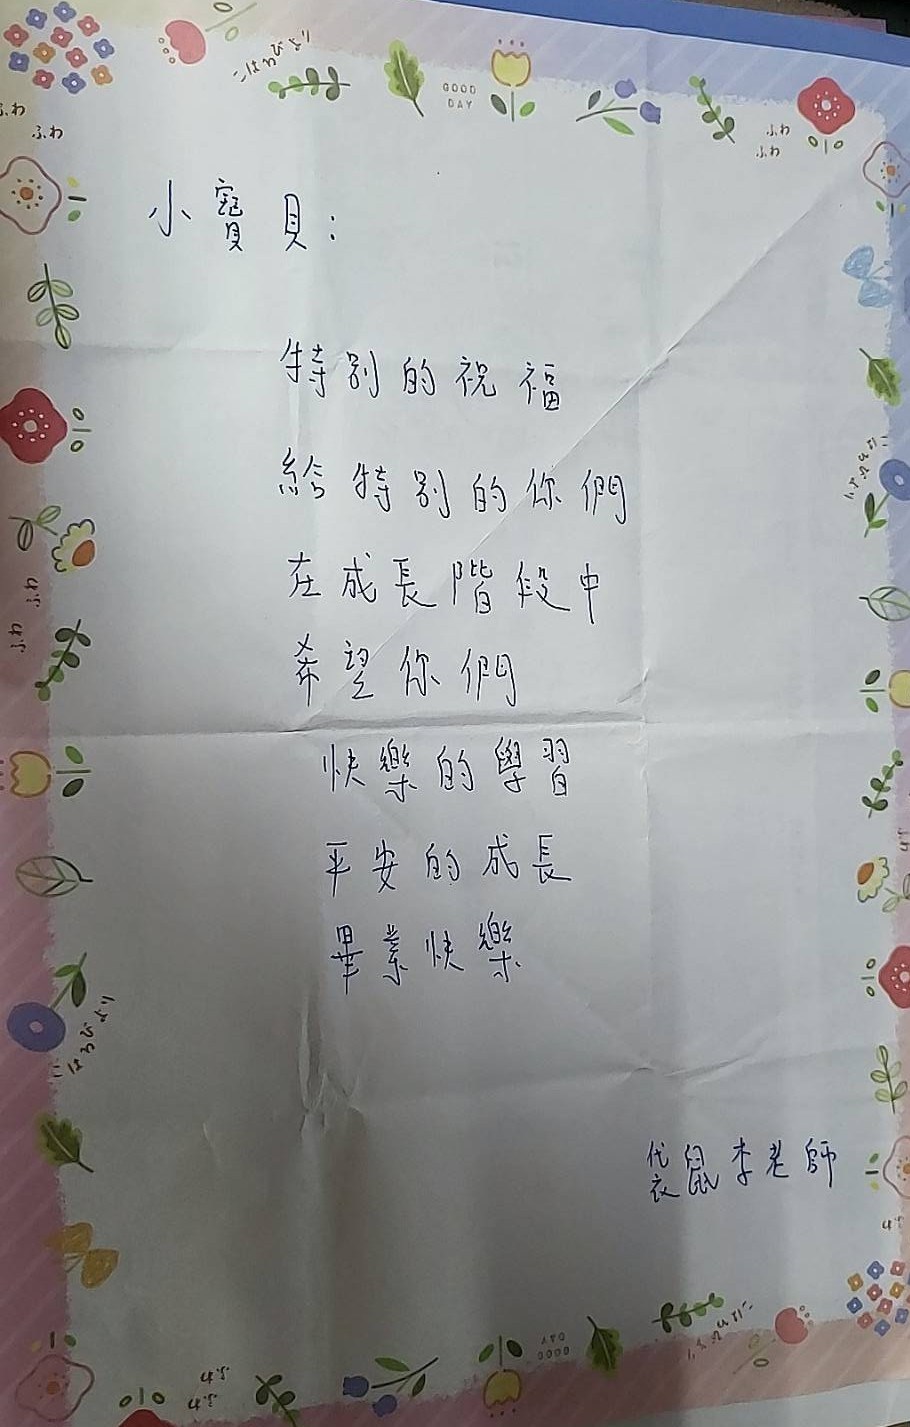 こはるびより
GOOD
DAY
ふわ
ふわ
ふわ
ふわ
小寶貝:
特別的祝福
給特別的你們
在成長階段中
希望你們
快樂的學習
平安的成長
畢業快樂
袋鼠李老師
ふわ
ふわ
こはるびより
こはるびより
ふわ
ふわ
こはるびより
GOOD
DAY